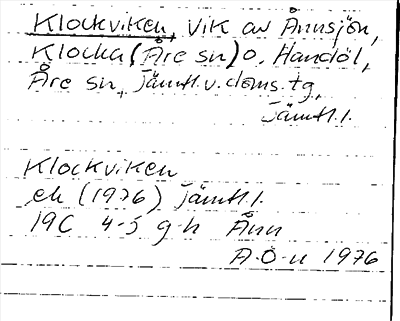 Klockviken, vik av Ånnsjön,
Klocka (Åre sn) o. Handöl,
Åre sn, Jämtl. v. doms. tg,
Jämtl. l.
Klockviken
ek (1976) Jämtl. l.
19C 4-5 g-h Ånn
A.Ö-n 1976